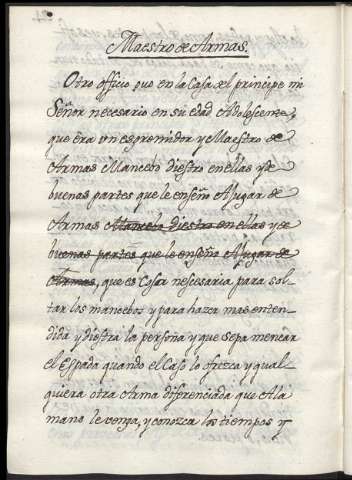 Maestro de Armas.
Otro officio huo en la Casa del principe mi
Señor necesario en su edad Adolescente,
que èra vn esgremidor y Maestro de
Armas Mancebo diestro en ellas y de
buenas partes que le enseño A Jugar de
Armas Mancebo diestro en ellas y de
buenas partes que le enseño A Jugar de
Armas, que es Cosa nescesaria para sol-
tar los mancebos y para hazer mas enten-
dida y diestra la persona y que sepa menear
el Espada quando el Caso lo ofrezca y qual-
quiera otra Arma diferenciada que A la
mano le venga, y conozca los tiempos y